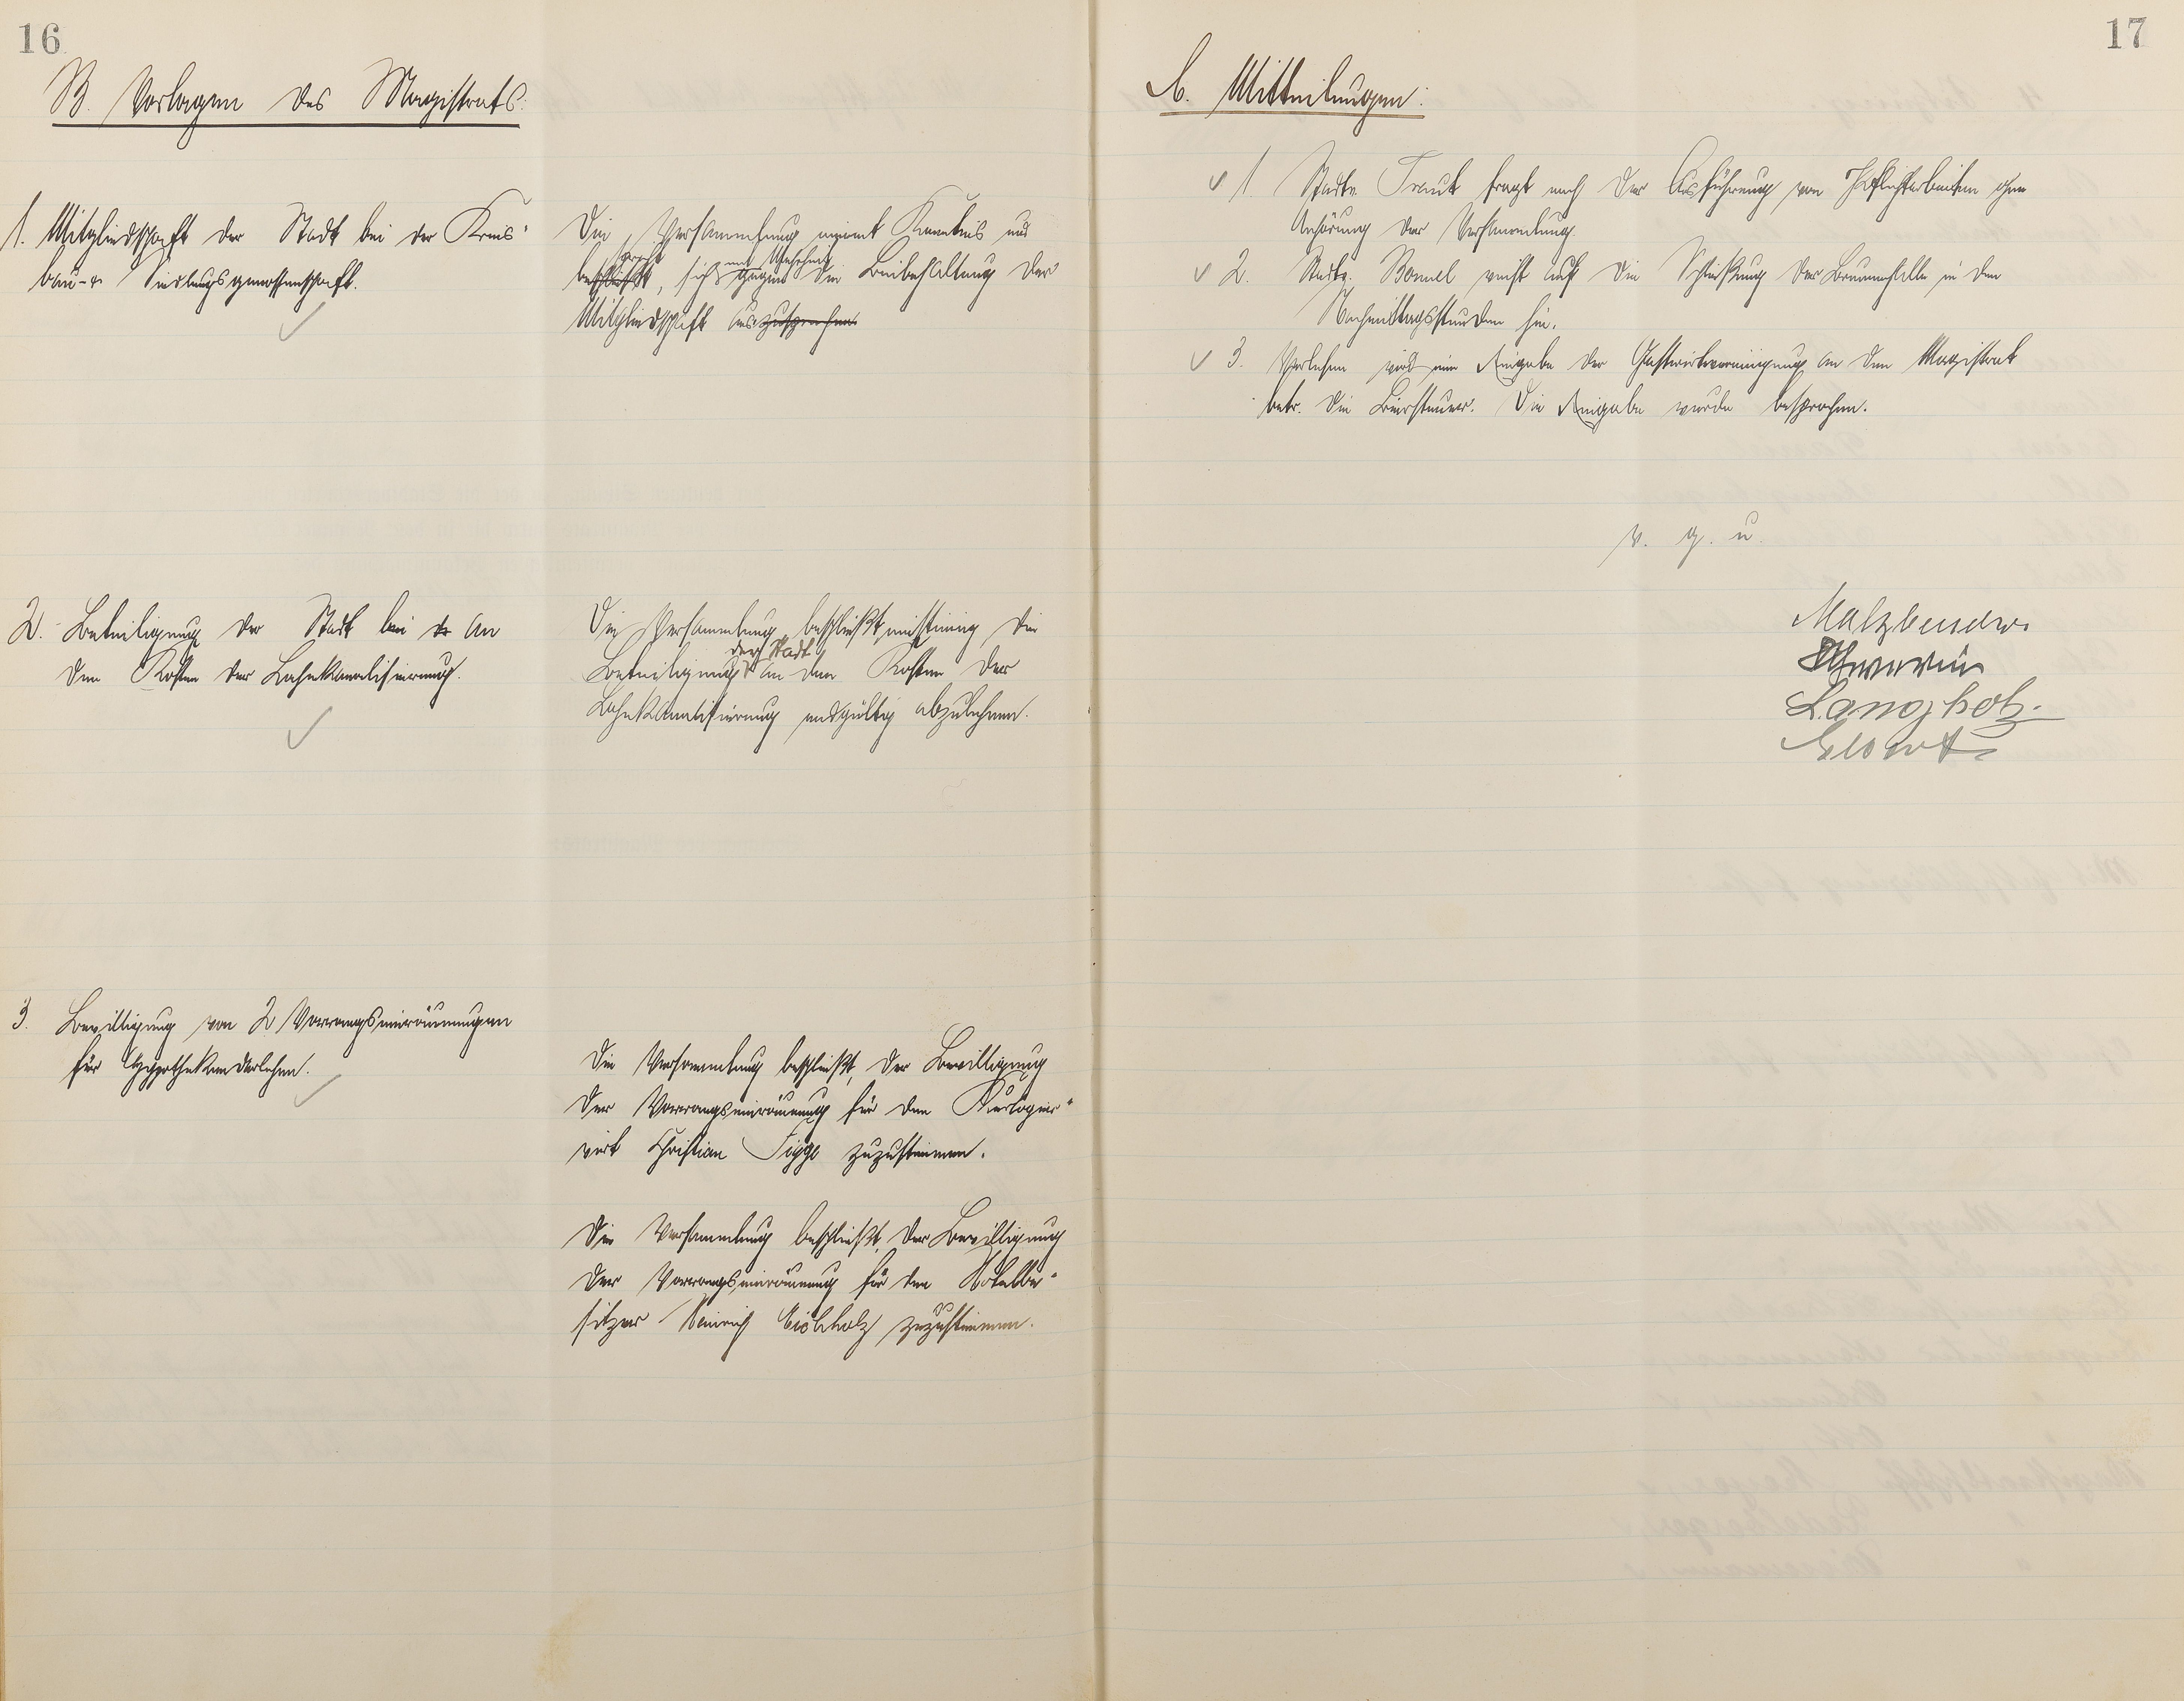 16
B. Vorlagen des Magistrats:
1. Mitgliedschaft der Stadt bei der Kreis-
bau- u. Siedlungsgenossenschaft.
Die Versammlung nimmt Kenntnis und
spricht mit Mehrheit
beschließt, sich gegen die Beibehaltung der
Mitgliedschaft auszusprechen.
2. Beteiligung der Stadt bei der an
den Kosten der Lahnkanalisierung.
Die Versammlung beschließt einstimmig die
der Stadt
Beteiligung an den Kosten der
Lahnkanalisierung endgültig abzulehnen.
3. Bewilligung von 2 Vorrangseinräumungen
für Hypothekendarlehen.
Die Versammlung beschließt, der Bewilligung
der Vorrangseinräumung für den Kurlogier-
wirt Christian zuzustimmen.
Die Versammlung beschließt, der Bewilligung
der Vorrangseinräumung für den Hotelbe-
sitzer Heinrich Eichholz zuzustimmen.
17
C. Mitteilungen:
1. Stadtv. fragt nach der Ausführung von ohne
Anhörung der Versammlung.
2. Stadtv. Bommel weist auf die Schließung der Brunnenhalle in den
Nachmittagsstunden hin.
3. Verlesen wird eine Eingabe der Gastwirtevereinigung an den Magistrat
betr. die Biersteuer. Die Eingabe wurde besprochen.
v. g. u.
Malzbender
Langholz